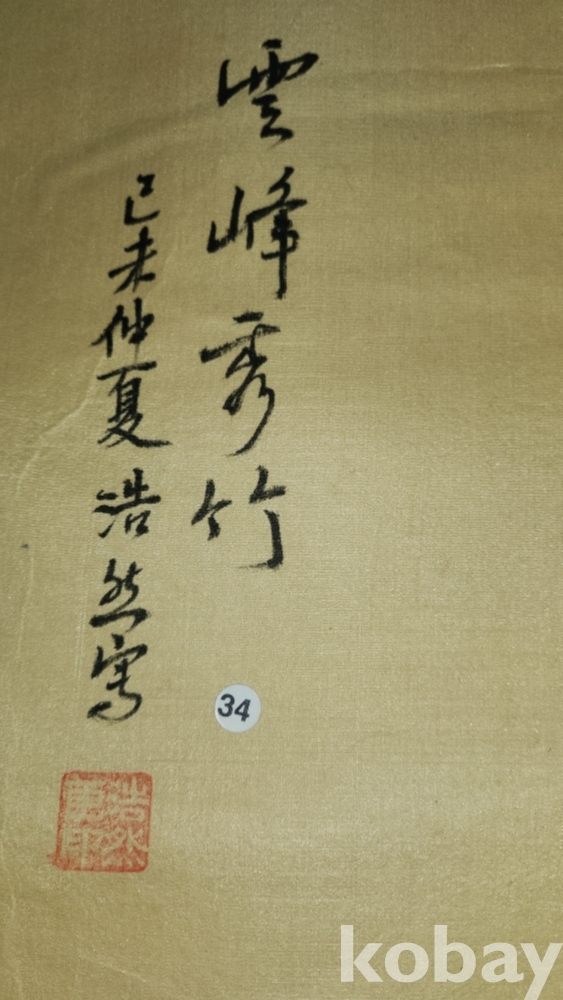 雲峰秀竹
己未仲夏浩然寫
34
浩然
kobay